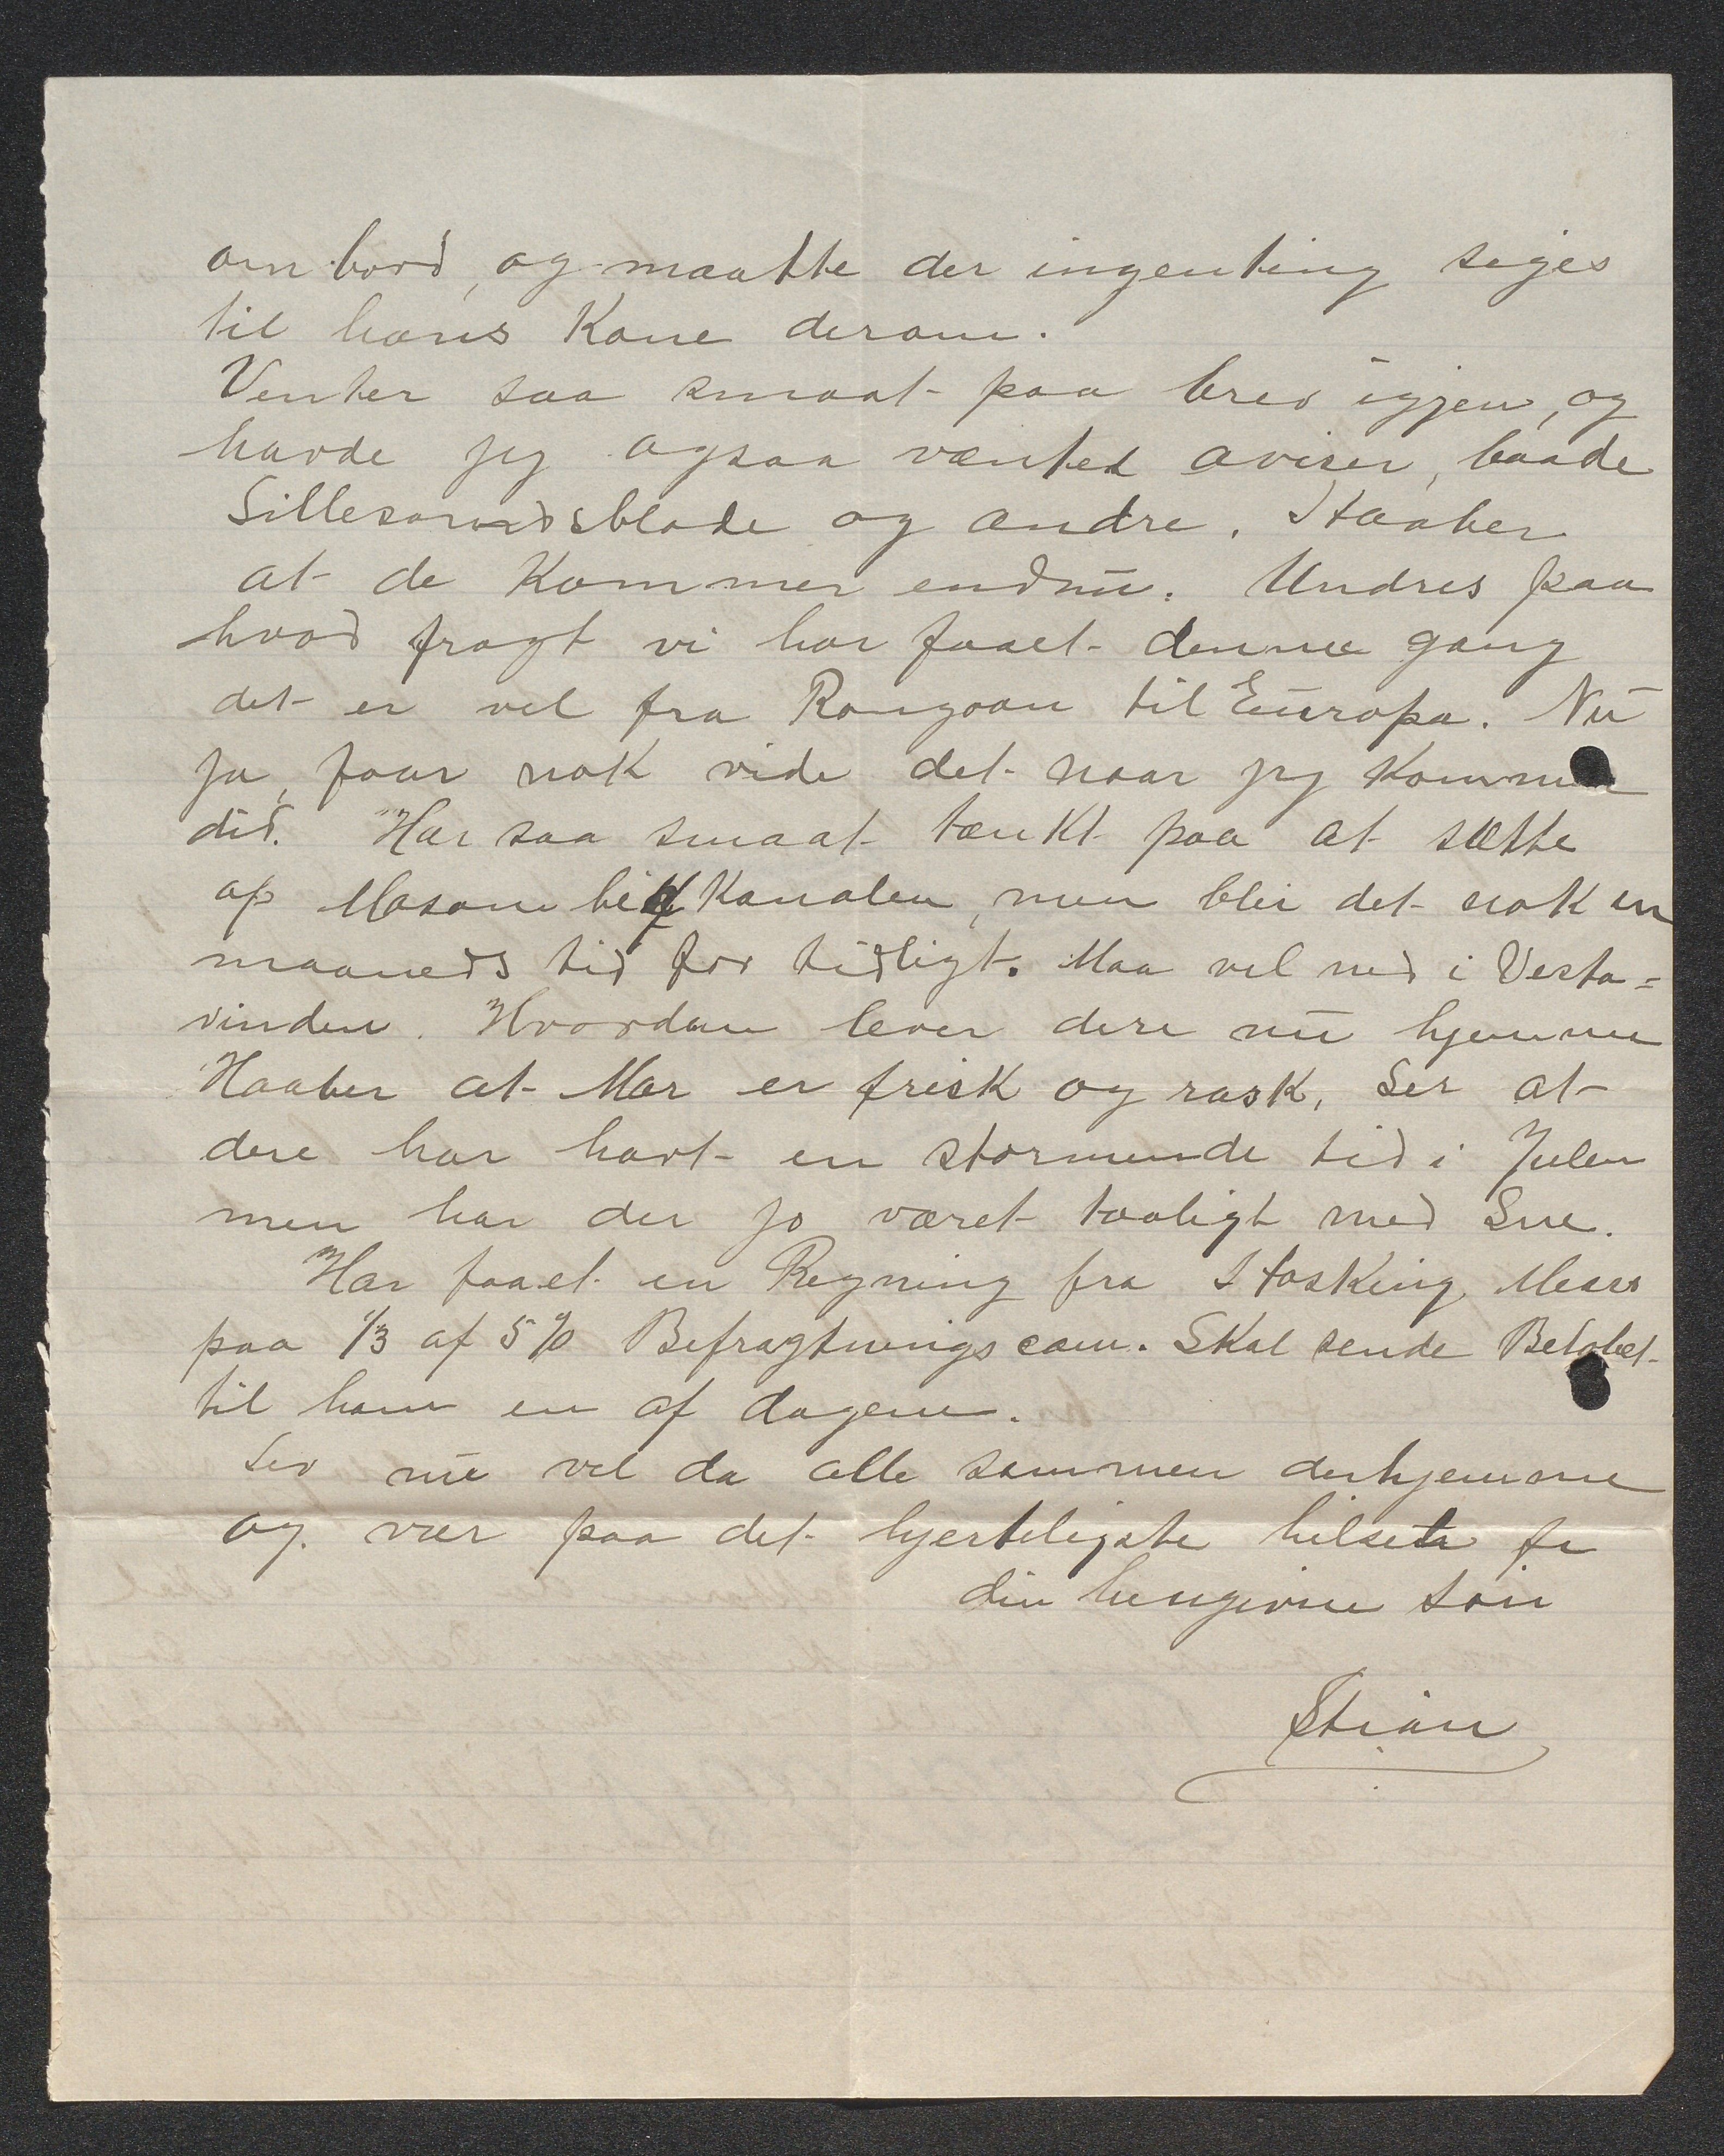 om bord, og maatte der ingenting siges
til hans Kone derom.
Venter saa smaat paa brev igjen, og
havde jeg ogsaa ventet aviser, baade
Lillesandsblade og andre. Haaber
at de Kommer endnu. Undres paa
hvad fragt vi har faaet denne gang
det er vel fra Rangoon til Europa. Nu
ja, faar nok vide det naar jeg Kommer
did. Har saa smaat tænkt paa at sætte
op Mosam Kanalen, men blir det nok en
maaneds tid for tidligt. Maa vel ned i Vesta=
vinden. Hvordan lever dere nu hjemme
Haaber at Mor er frisk og rask, Ser at
dere har havt en stormende tid i Julen
men har der jo været taaligt med Sne.
Har faaet en Regning fra Hosking, Mears
paa 1/3 af 5% Befragtnings com. Skal sende Beløbet
til ham en af dagene.
Lev nu vel da alle sammen derhjemme
og vær paa det hjerteligste hilset fr
din hengivne søn
Stian